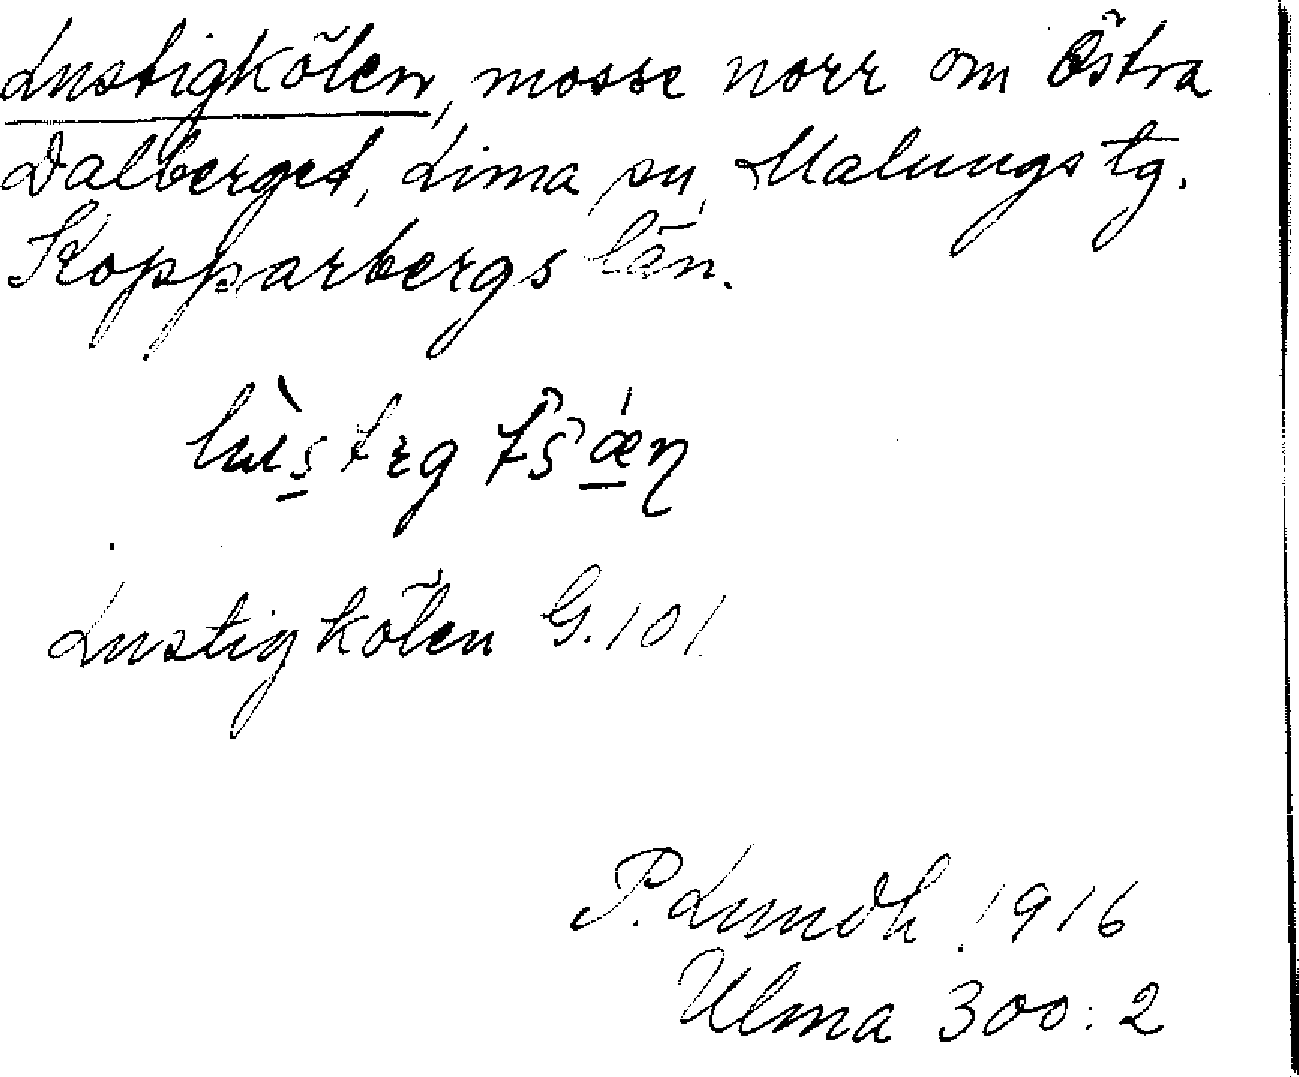 Lustigkölen, mosse norr om Östra
Dalberget, Lima sn, Malungs tg.
Kopparbergs län.
Lustigkölen G. 101
P. Lundh 1916
Ulma 300:2